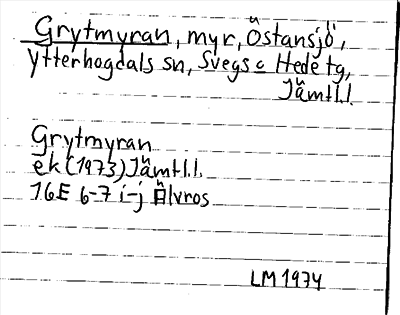 Grytmyran, myr, Östansjö,
Ytterhogdals sn, Svegs o Hede tg,
Jämtl.l.
Grytmyran
ek (1973) Jämtl.l.
16E 6-7 i-j Älvros
LM 1974